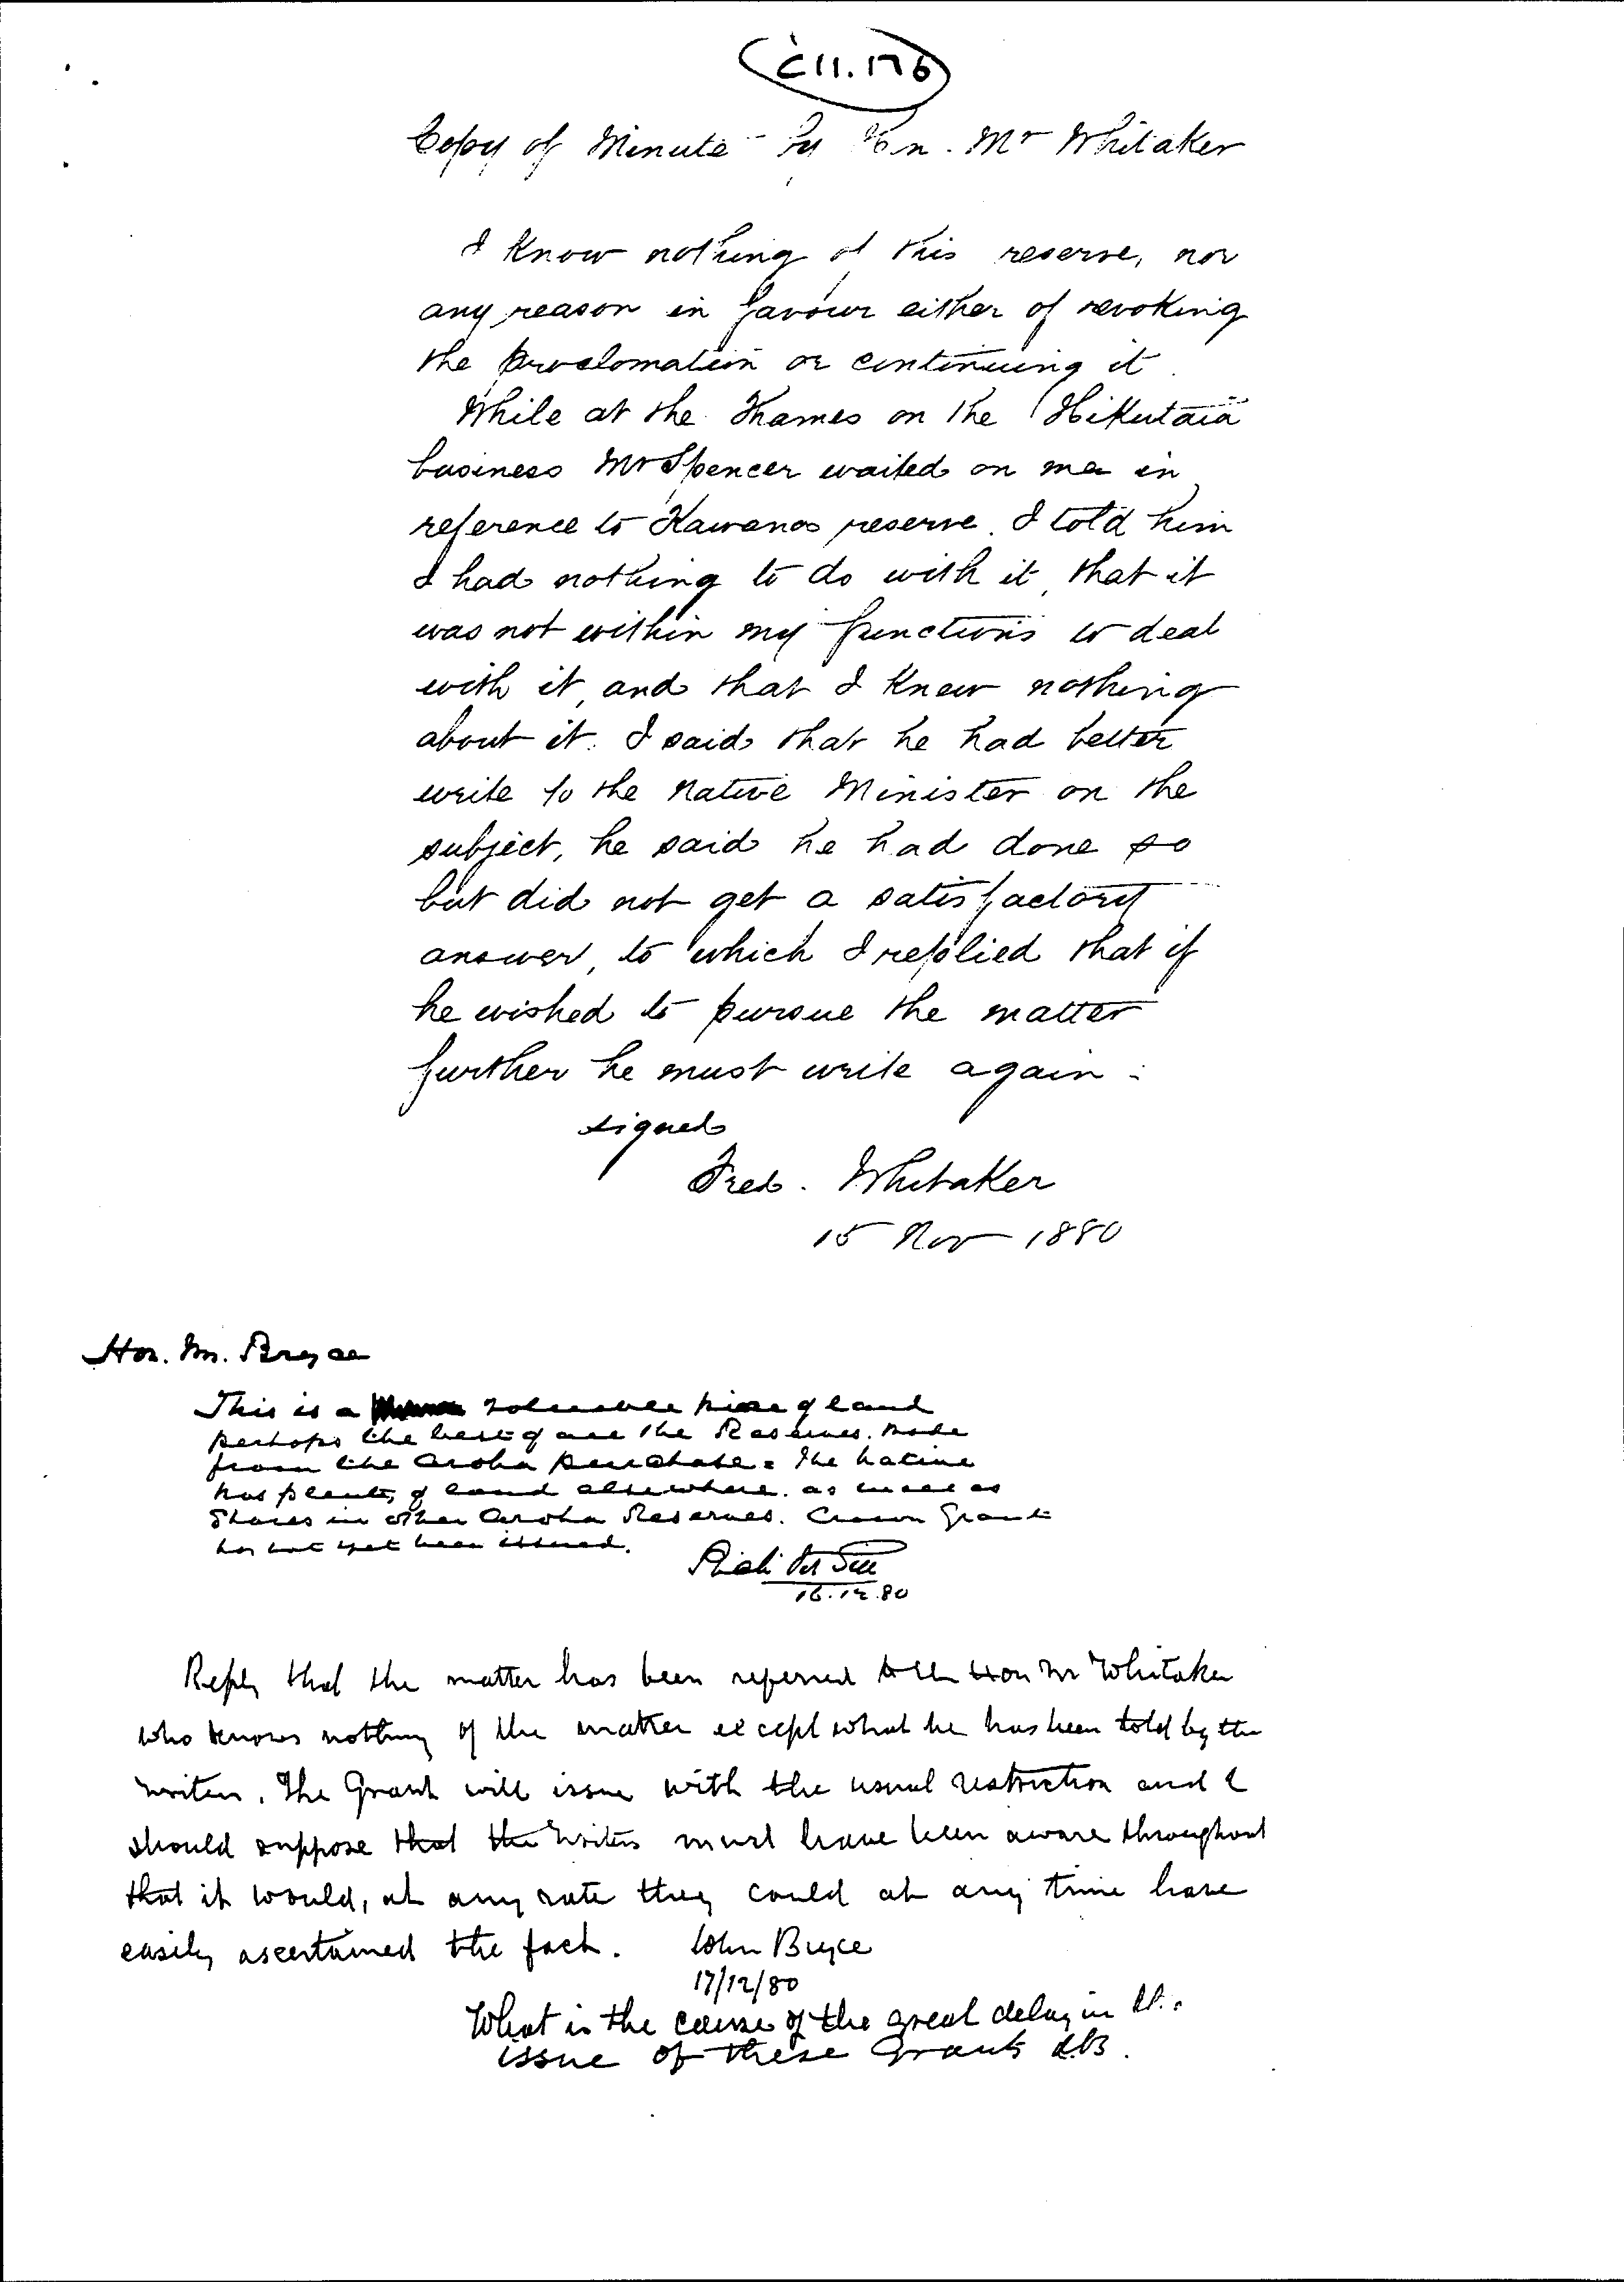 C11.176
Copy of Minute by Hon. Mr Whitaker
I know nothing of this reserve, nor
any reason in favour either of revoking
the proclamation or continuing it.
While at the Thames on the Hikutaia
business Mr Spencer waited on me in
reference to Kawana's reserve. I told him
I had nothing to do with it, that it
was not within my functions to deal
with it, and that I knew nothing
about it. I said that he had better
write to the Native Minister on the
subject, he said he had done so
but did not get a satisfactory
answer, to which I replied that if
he wished to pursue the matter
further he must write again.
signed
Fred. Whitaker
15 Nov 1880
Hon. Mr. Bryce
This is a valuable piece of land
perhaps the best of all the Reserves made
from the Aroha purchase. The native
has plenty of land elsewhere, as well as
Shares in other Aroha Reserves. Crown Grant
has not yet been issued.
16.12.80
Reply that the matter has been referred to the Hon Mr Whitaker
who knows nothing of the matter except what he has been told by the
writers. The Grant will issue with the usual restriction and I
should suppose that the writers must have been aware throughout
that it would, at any rate they could at any time have
easily ascertained the fact. John Bryce
17/12/80
What is the cause of the great delay in the
issue of these Grants J.B.